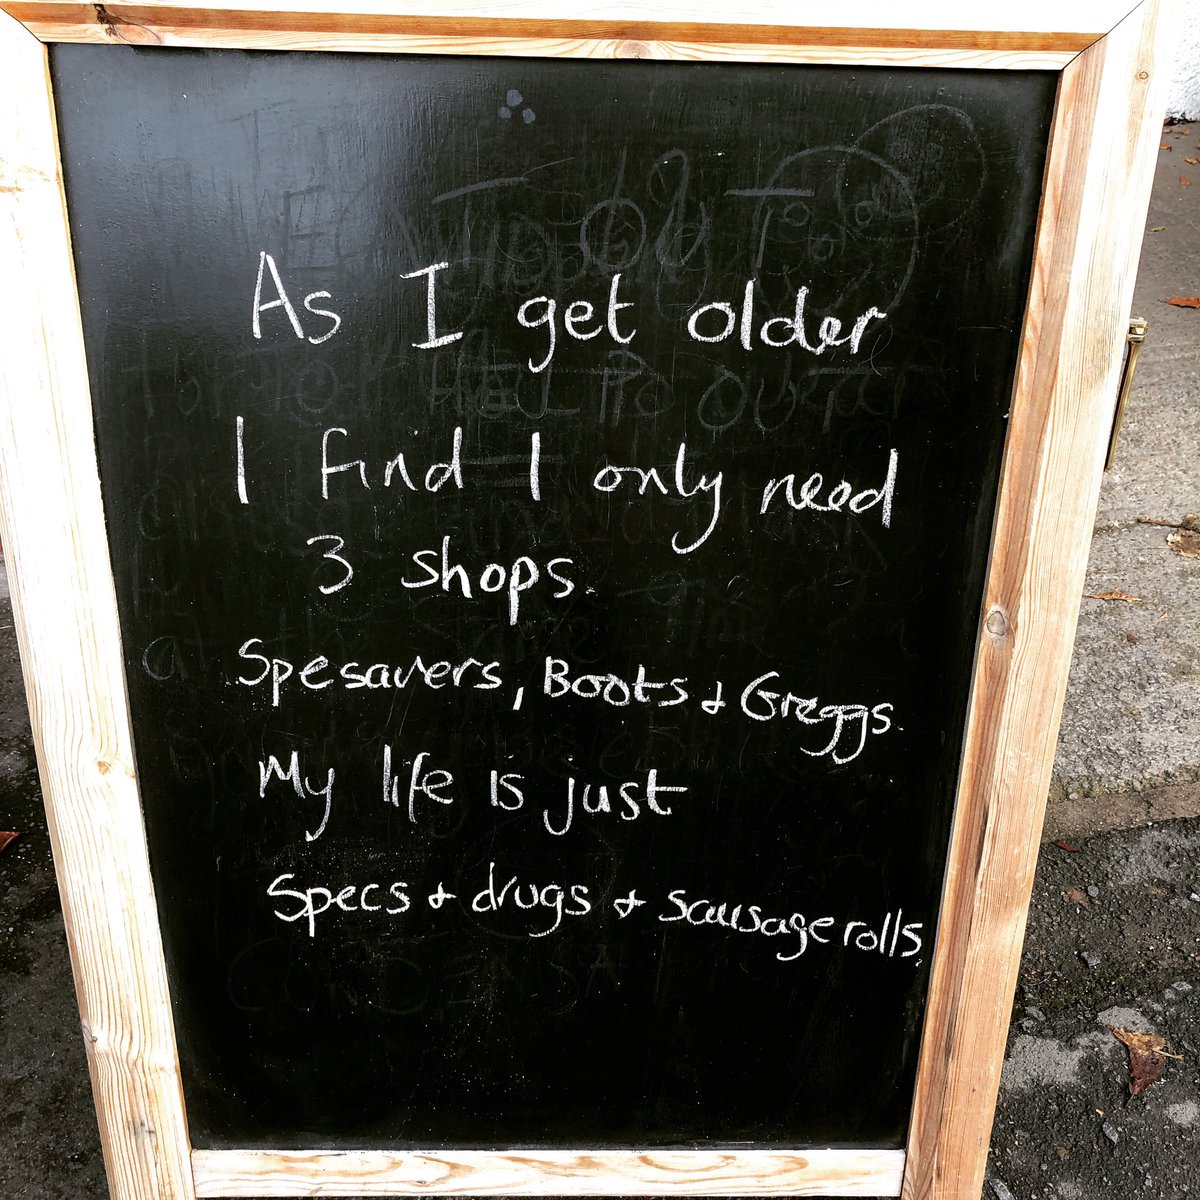 As I get older
I find I only need
3 shops.
Spesavers, Boots & Greggs.
My life is just
Specs & drugs & sausage rolls.